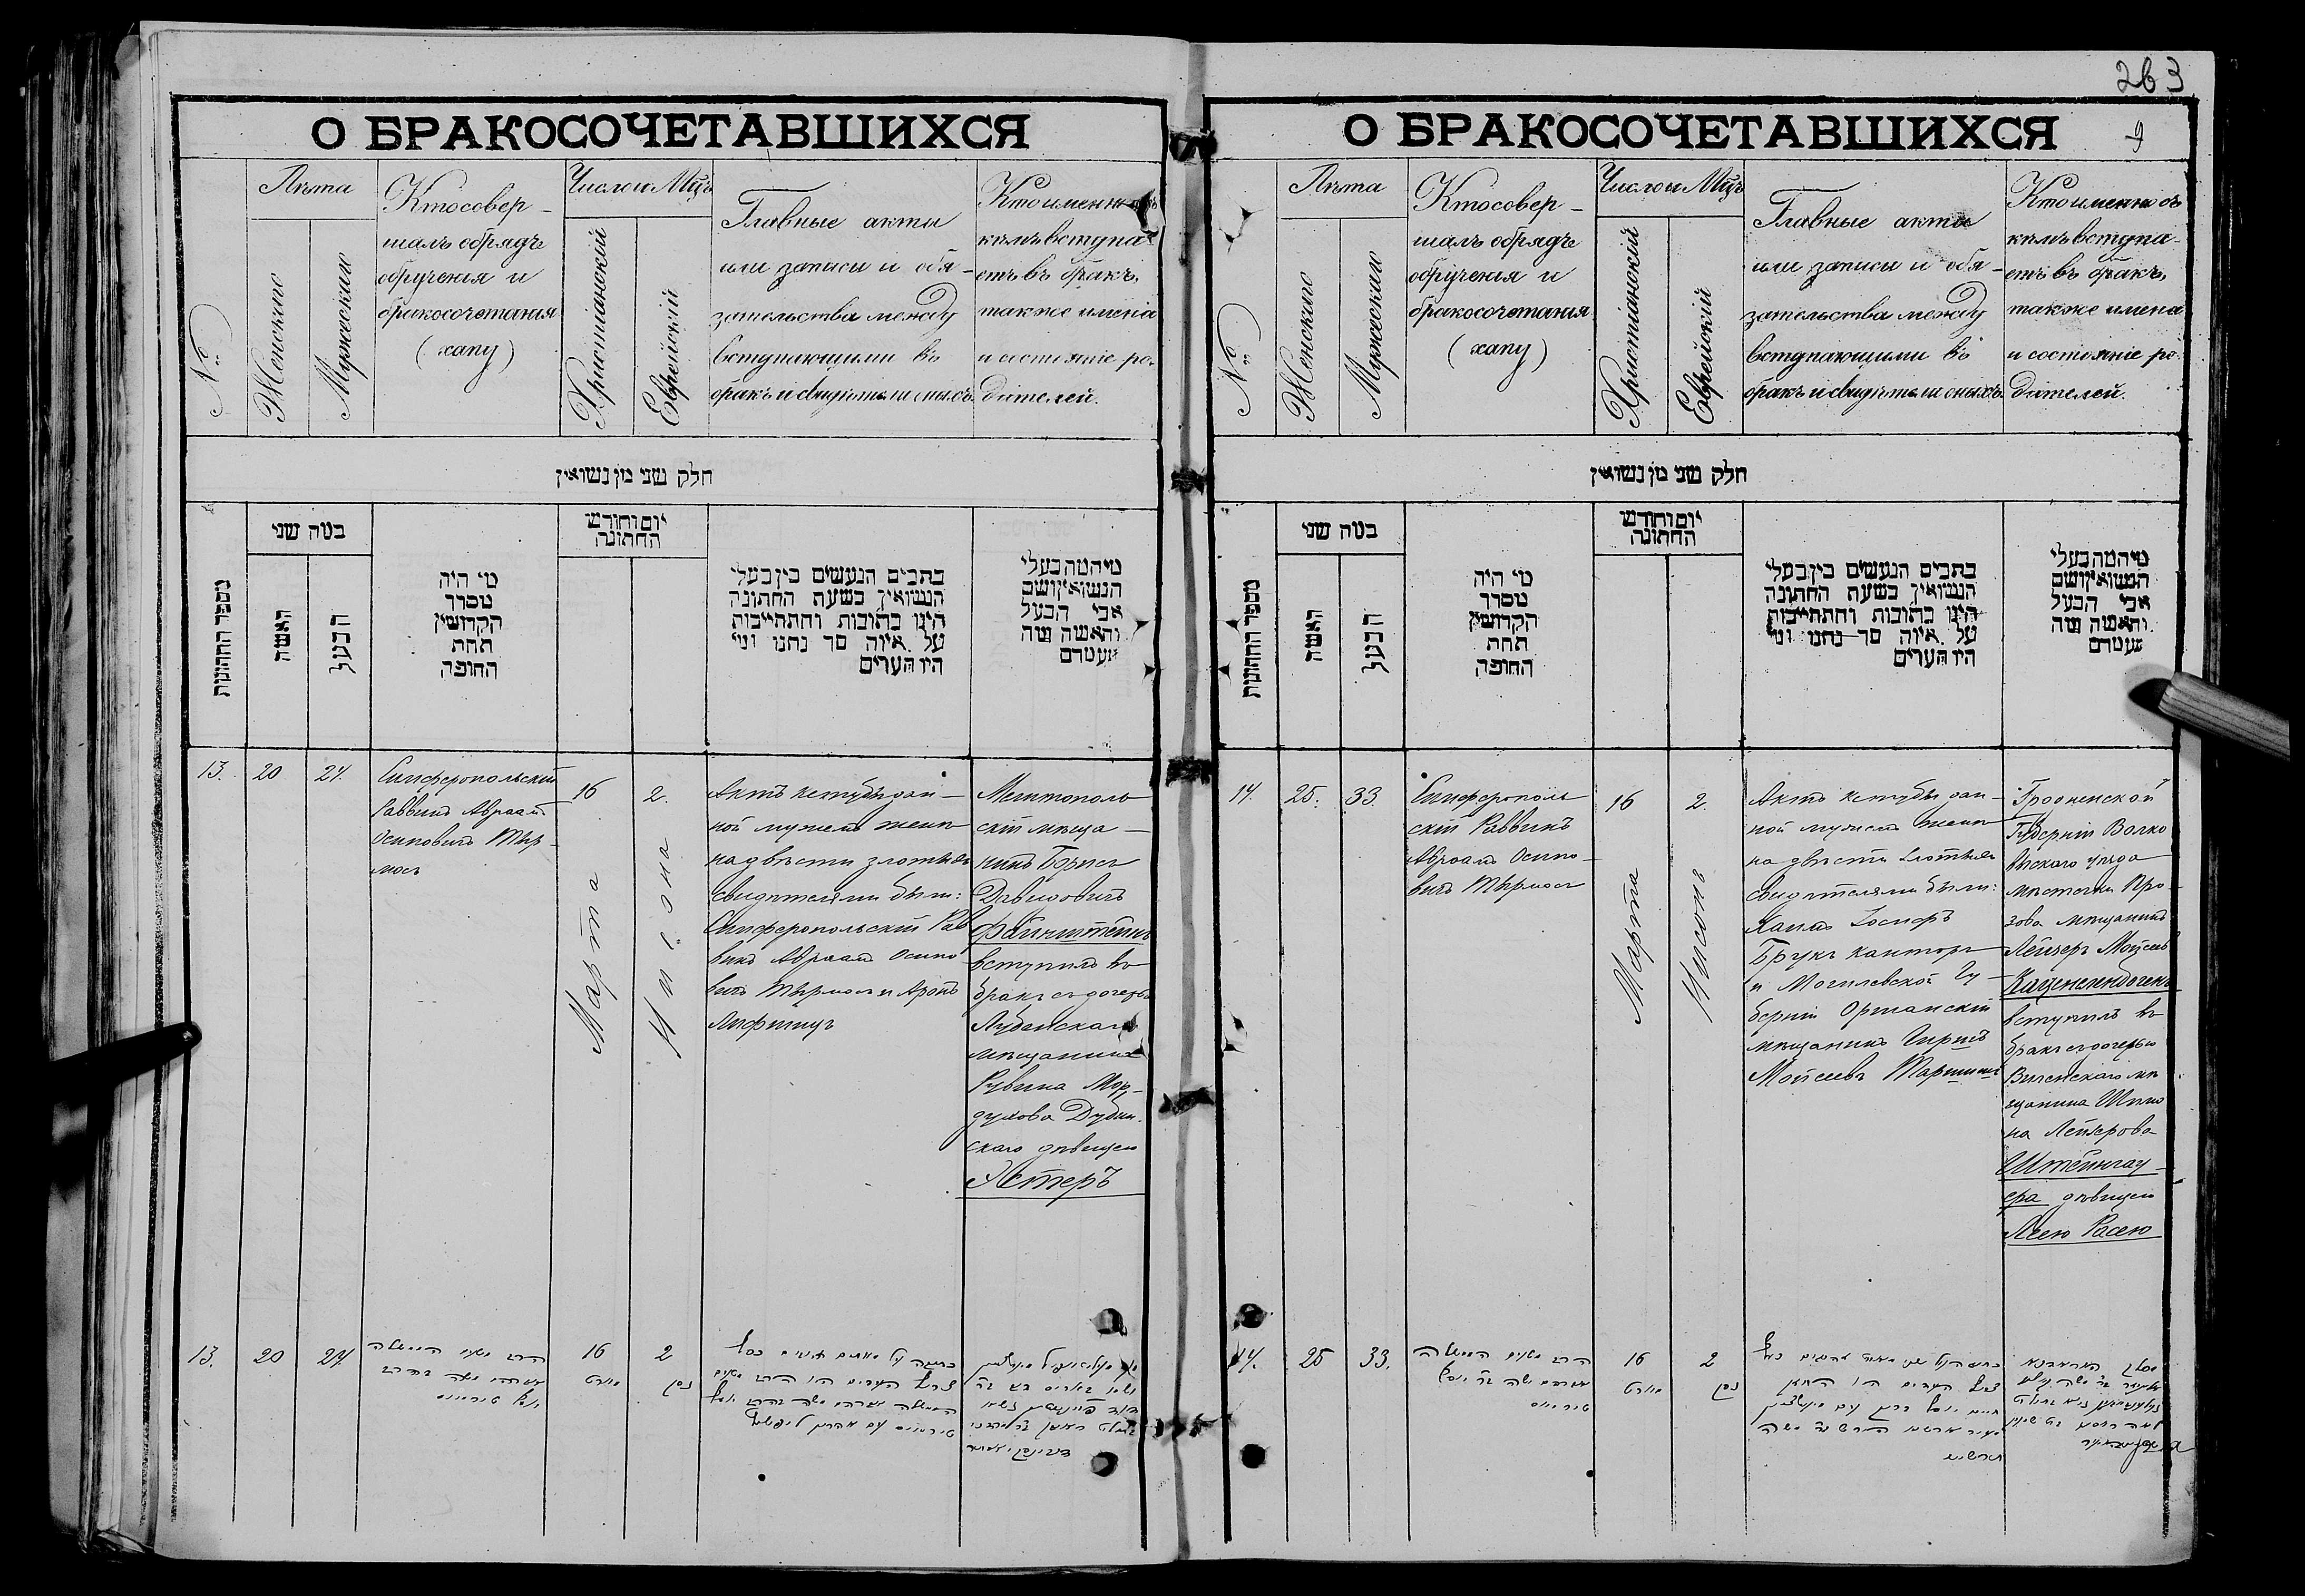 263
О БРАКОСОЧЕТАВШИХСЯ
№
Лѣта
Женскаго
Мужескаго
Кто совер-
шалъ обрядъ
обрученія и
бракосочетанія
(хапу)
Число и Мцъ
Христіанскій
Еврейскій
Главные акты
или записи и обя-
зательства между
вступающими въ
бракъ и свидѣтели оныхъ.
Кто именно съ
кѣмъ вступа-
етъ въ бракъ,
также имена
и состояніе ро-
дителей.
חלק שני מן נשואין
מספר החתונות
במה שני
האשה
הבעל
מי היה
מסדר
הקדושין
תחת
החופה
יום וחודש
החתונה
כתבים הנעשים בין בעלי
הנשואין בשעת החתונה
היינו כתובות והתחייבות
על איזה סך נתנו ומי
היו העדים
מי המה בעלי
הנשואין ושם
אבי הבעל
והאשה ומה
מעמדם
13.
20
27.
Симферопольскій
Раввинъ Авраамъ
Осиповичъ Тыр-
мосъ
16
Марта
2.
Нисона
Актъ кетубы дан-
ной мужемъ женѣ
на двѣсти злотыхъ
свидѣтелями были:
Симферопольскій Рав
винъ Авраамъ Осипо
вичъ Тырмосъ и Аронъ
Лифшицъ
Мелитополь
скій мѣща-
нинъ Борисъ
Давидовичъ
Файнштейнъ
вступилъ въ
бракъ съ дочерью
Лубенскаго
мѣщанина
Рувина Мор-
духова Дубин-
скаго дѣвицею
Эстеръ
13.
20
27
16
מארט
2
ניסן
О БРАКОСОЧЕТАВШИХСЯ
9
№
Лѣта
Женскаго
Мужескаго
Кто совер-
шалъ обрядъ
обрученія и
бракосочетанія
(хапу)
Число и Мцъ
Христіанскій
Еврейскій
Главные акты
или записи и обя-
зательства между
вступающими въ
бракъ и свидѣтели оныхъ.
Кто именно съ
кѣмъ вступа-
етъ въ бракъ,
также имена
и состояніе ро-
дителей.
חלק שני מן נשואין
מספר החתונות
במה שני
האשה
הבעל
מי היה
מסדר
הקדושין
תחת
החופה
יום וחודש
החתונה
כתבים הנעשים בין בעלי
הנשואין בשעת החתונה
היינו כתובות והתחייבות
על איזה סך נתנו ומי
היו העדים
מי המה בעלי
הנשואין ושם
אבי הבעל
והאשה ומה
מעמדם
14.
25.
33.
Симферополь
скій Раввинъ
Авраамъ Осипо-
вичъ Тырмосъ
16
Марта
2.
Нисонъ
Актъ кетубы дан-
ной мужемъ женѣ
на двѣсти злотыхъ
свидѣтелями были:
Хаимъ Іосифъ
Брукъ канторъ
и Могилевской Гу-
берніи Оршанскій
мѣщанинъ Гиршъ
Мойсеевъ
Гродненской
Губерніи Волко
выскаго уѣзда
мѣстечка Про-
зова мѣщанинъ
Лейзеръ Мойсеевъ
Каценеленбогенъ
вступилъ въ
бракъ съ дочерью
Виленскаго мѣ
щанина Шимо
на Лейзерова
дѣвицею
Лею Расею
14.
25
33.
16
מארט
2
ניסן